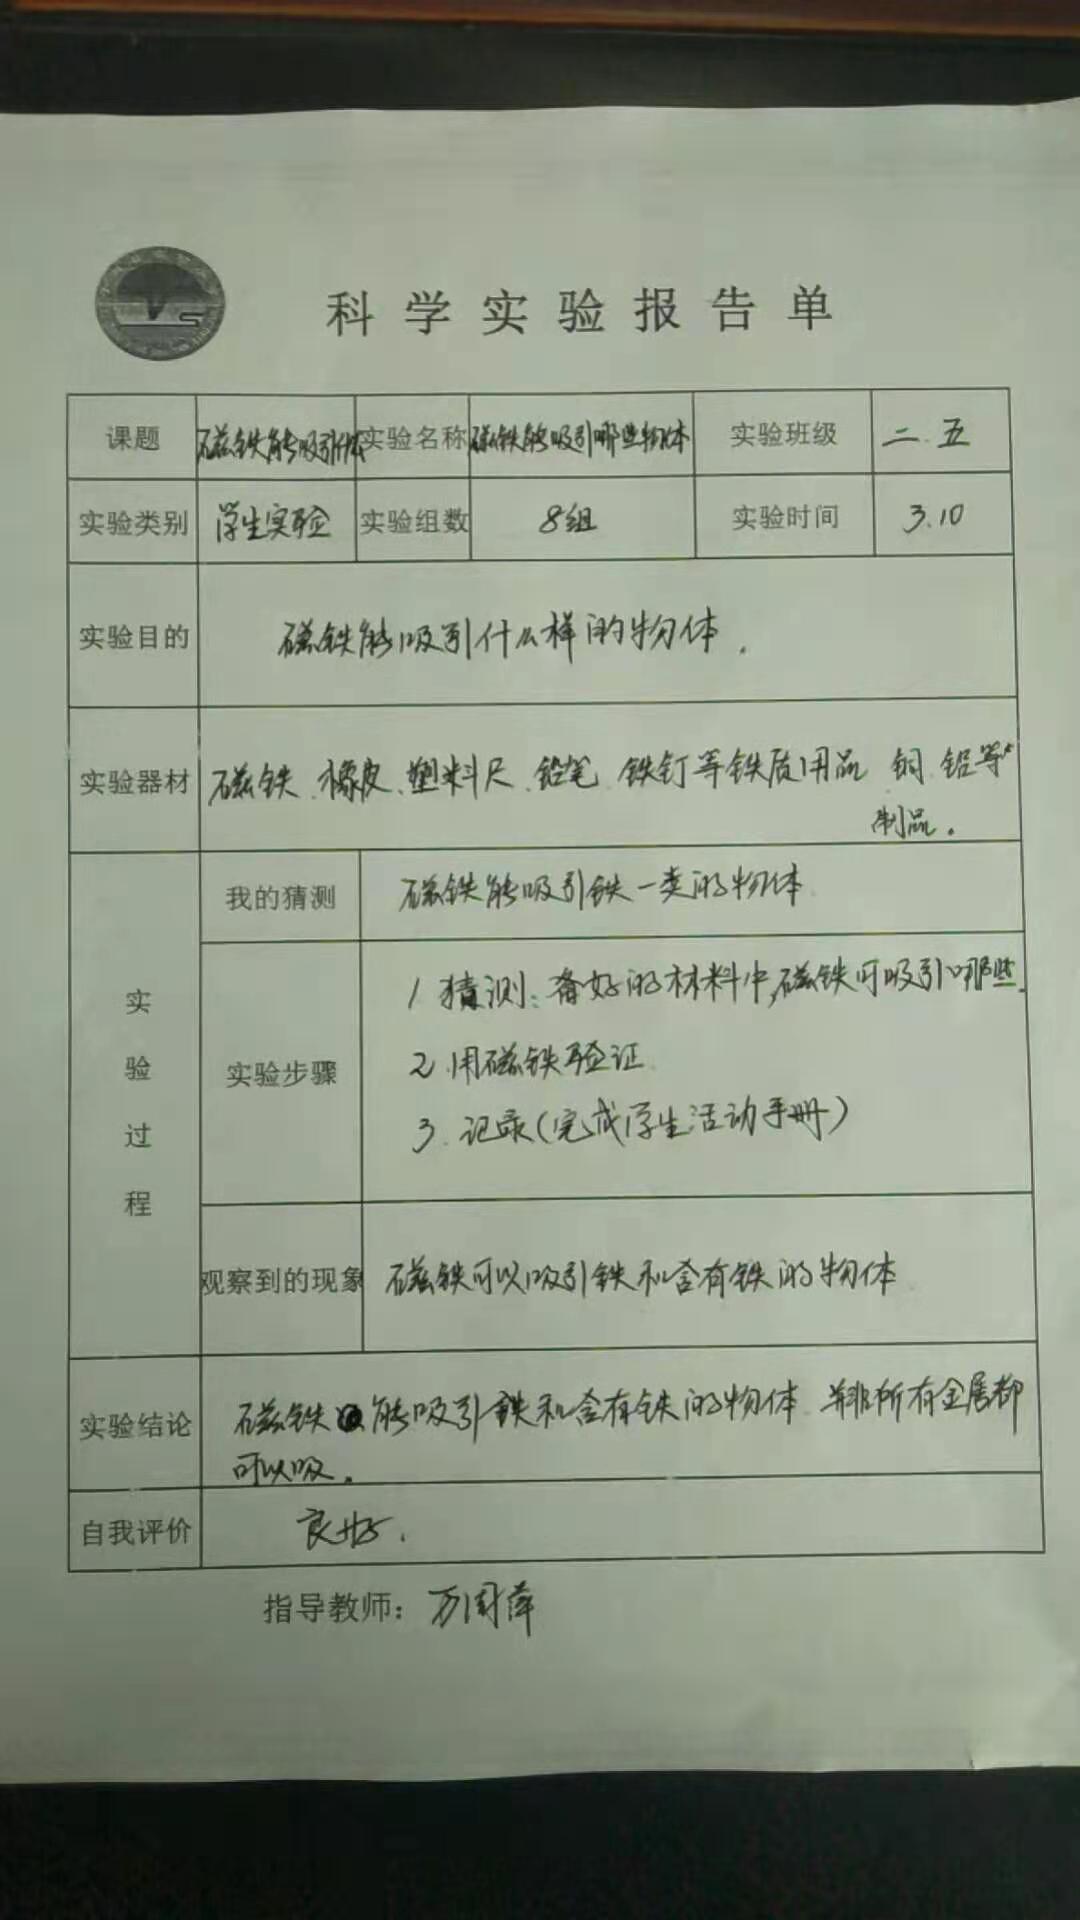 科学实验报告单
课题 磁铁能吸引什么 实验名称 磁铁能吸引哪些物体 实验班级 二.五
实验类别 学生实验 实验组数 8组 实验时间 3.10
实验目的 磁铁能吸引什么样的物体.
实验器材 磁铁、橡皮、塑料尺、铅笔、铁钉等铁质用品 铜、铝等
制品.
实验过程
我的猜测 磁铁能吸引铁一类的物体
实验步骤
1 猜测:备好的材料中,磁铁可吸引哪些.
2.用磁铁验证
3.记录(完成学生活动手册)
观察到的现象 磁铁可以吸引铁和含有铁的物体
实验结论 磁铁能吸引铁和含有铁的物体 并非所有金属都
可以吸.
自我评价 良好.
指导教师:万国萍